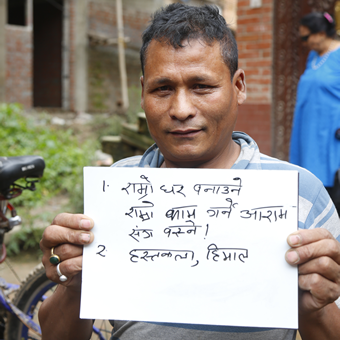 1. राम्रो घर बनाउने
राम्रो काम गर्ने आराम
संग बस्ने!
2. हस्तकला, हिमाल